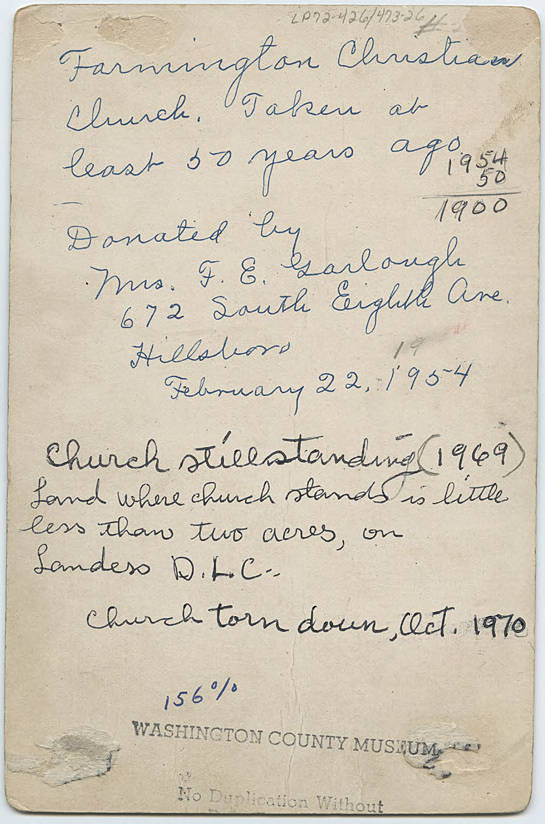 LP72-426/473-26
Farmington Christian
Church. Taken at
least 50 years ago.
1954
50
1900
Donated by
Mrs. F. E. Garlough
672 South Eighth Ave.
Hillsboro
19
February 22, 1954
Church still standing (1969)
Land where church stands is little
less than two acres, on
Landess D.L.C.
Church torn down, Oct. 1970
156%
WASHINGTON COUNTY MUSEUM
No Duplication Without